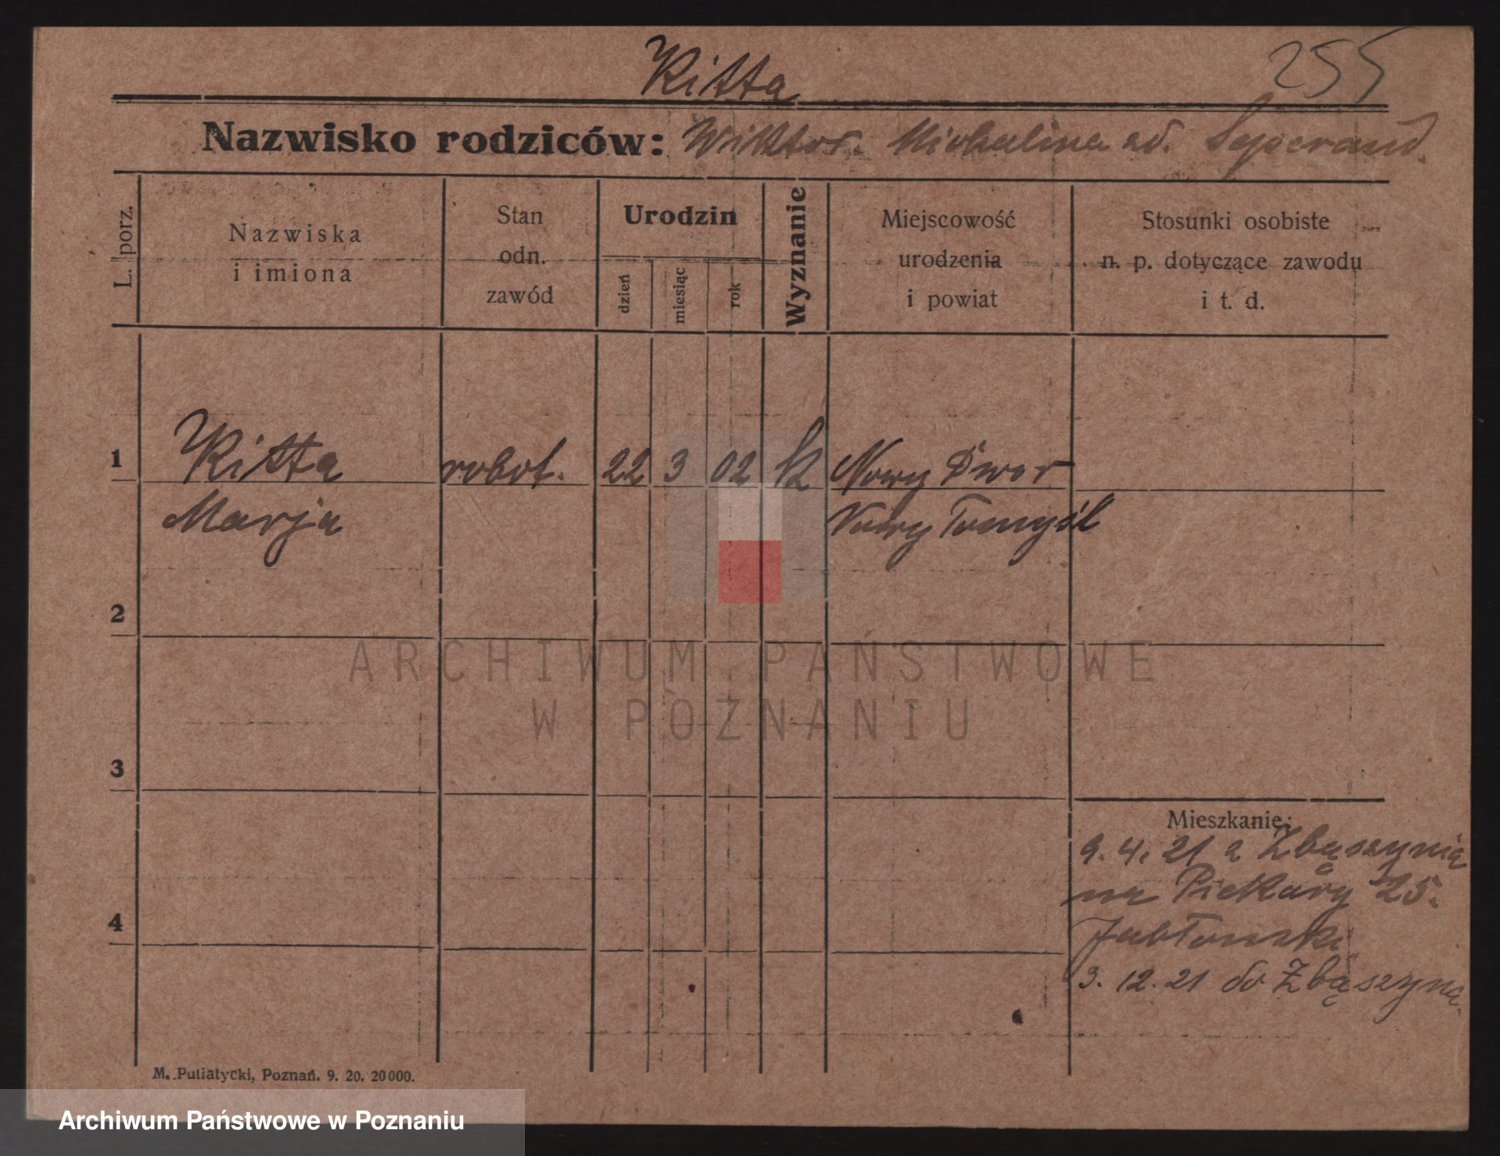 Kitta
255
Nazwisko rodziców: Wiktor. Michalina zd.
L. porz.
Nazwiska
i imiona
Stan
odn.
zawód
Urodzin
dzień
miesiąc
rok
Wyznanie
Miejscowość
urodzenia
i powiat
Stosunki osobiste
n. p. dotyczące zawodu
i t. d.
1 Kitta robot. 22 3 02 Nowy Dwor
Marja Nowy Tomyśl
2
3
4
Mieszkanie:
9. 4. 21 z Zbąszynia
na Piekary 25.
Jabłonski
3. 12. 21 do Zbąszyna
M. Putiatycki, Poznań. 9. 20. 20000.
ARCHIWUM PAŃSTWOWE
W POZNANIU
Archiwum Państwowe w Poznaniu